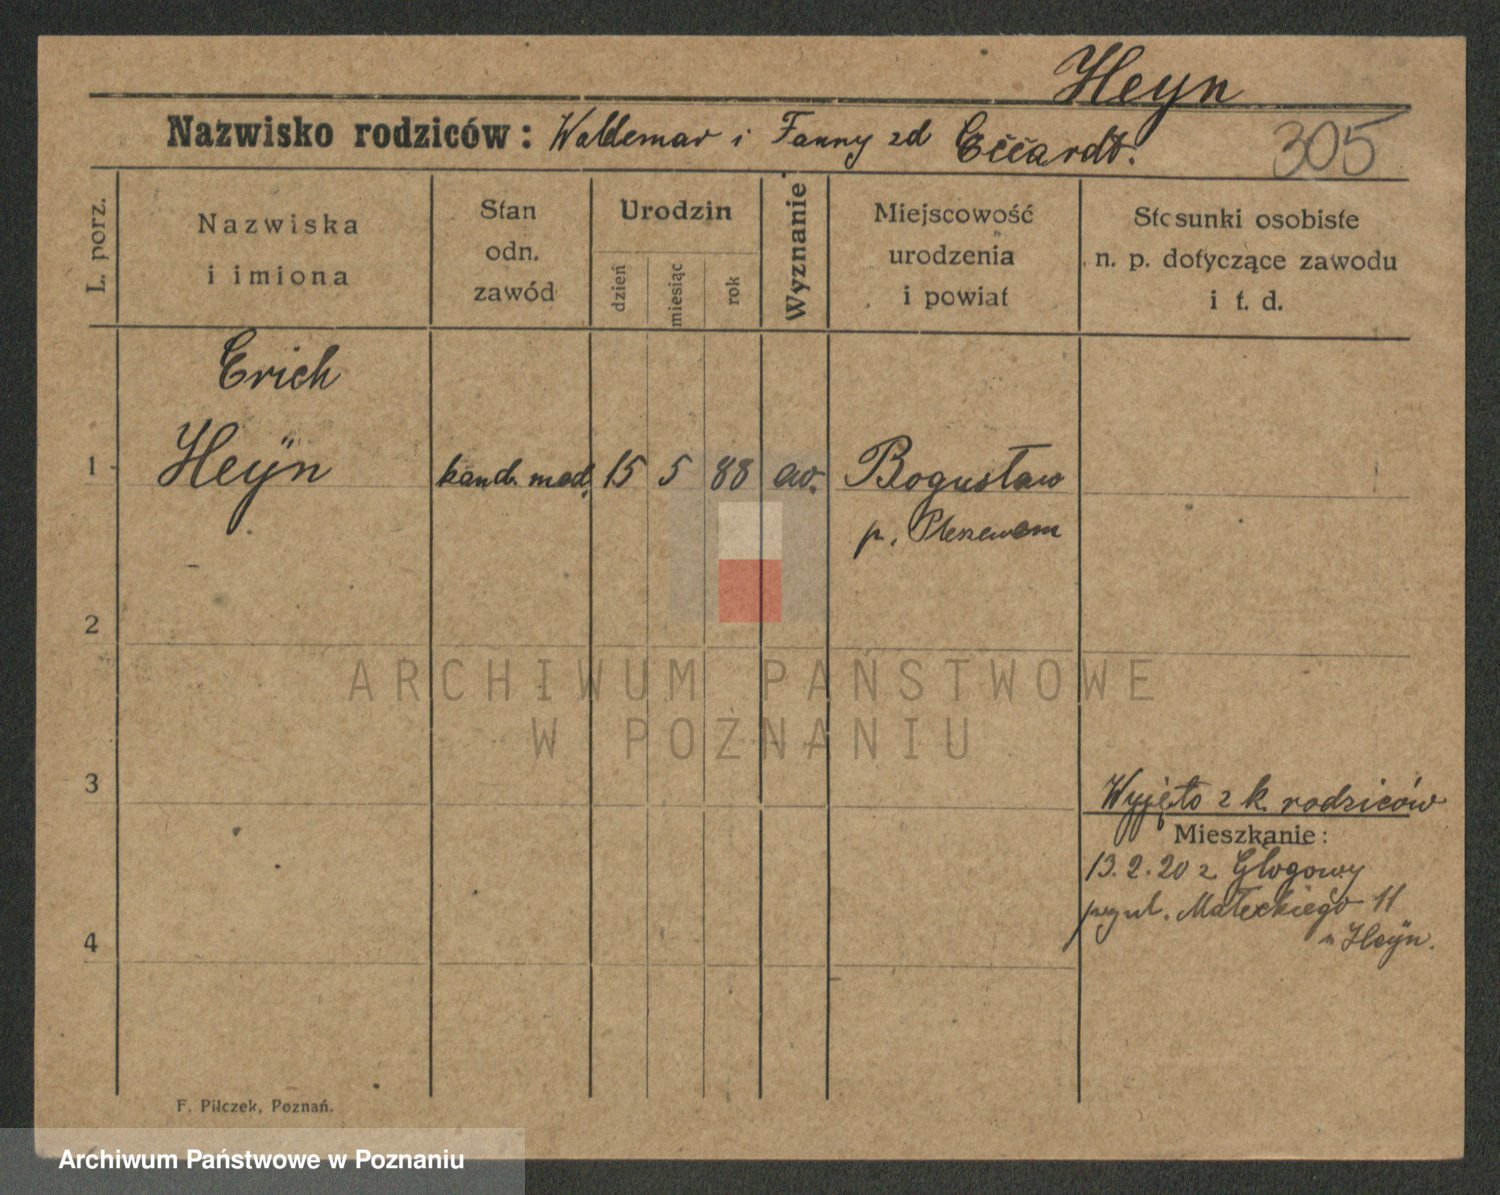 Heyn
Nazwisko rodziców: Waldemar i Fanny zd Eččardt.
305
L. porz.
Nazwiska
i imiona
Stan
odn.
zawód
Urodzin
dzień
miesiąc
rok
Wyznanie
Miejscowość
urodzenia
i powiat
Stosunki osobiste
n. p. dotyczące zawodu
i t. d.
Erich
1 Heÿn kand. med. 15 5 88 ew. Bogusław
p. Pleszewem
2
3
Wyjęto z k. rodziców
Mieszkanie:
13.2.20 z Głogowy
ul. Małeckiego 11
Heÿn.
4
F. Pilczek, Poznań.
ARCHIWUM PAŃSTWOWE
W POZNANIU
Archiwum Państwowe w Poznaniu